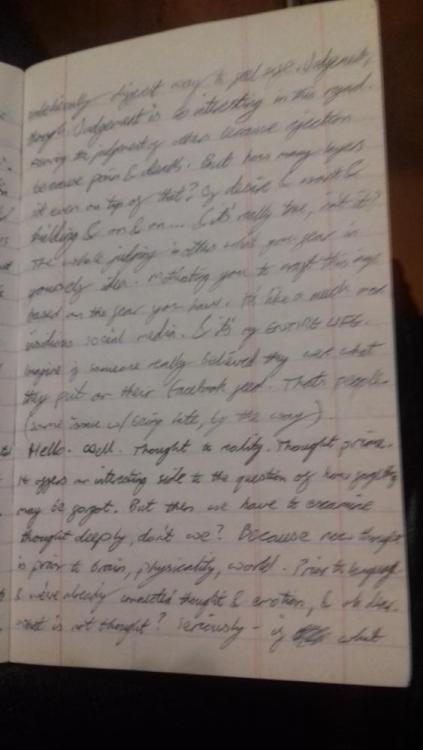 way to feel safe. Judgement,
though. Judgement is so interesting in this regard.
the judgment of others because rejection
because pain & death. But how many layers
it even on top of that? By desire &
building & on & on... & it's really true, isn't it?
The whole judging in others what you fear in
yourself idea. Motivating you to craft this image
based on the fear you have. It's like a much more
insidious social media. & it's my ENTIRE LIFE.
Imagine if someone really believed they were what
they put on their Facebook feed. That's people.
(same issue w/ being late, by the way).
Hello. Well. Thought to reality. Thought prime.
It offers an interesting side to the question of how
may be. But then we have to examine
thought deeply, don't we? Because now thought
is prior to brain, physicality, world. Prior to language
& we've already connected thought & emotion, & 
what is not thought? Seriously - if what